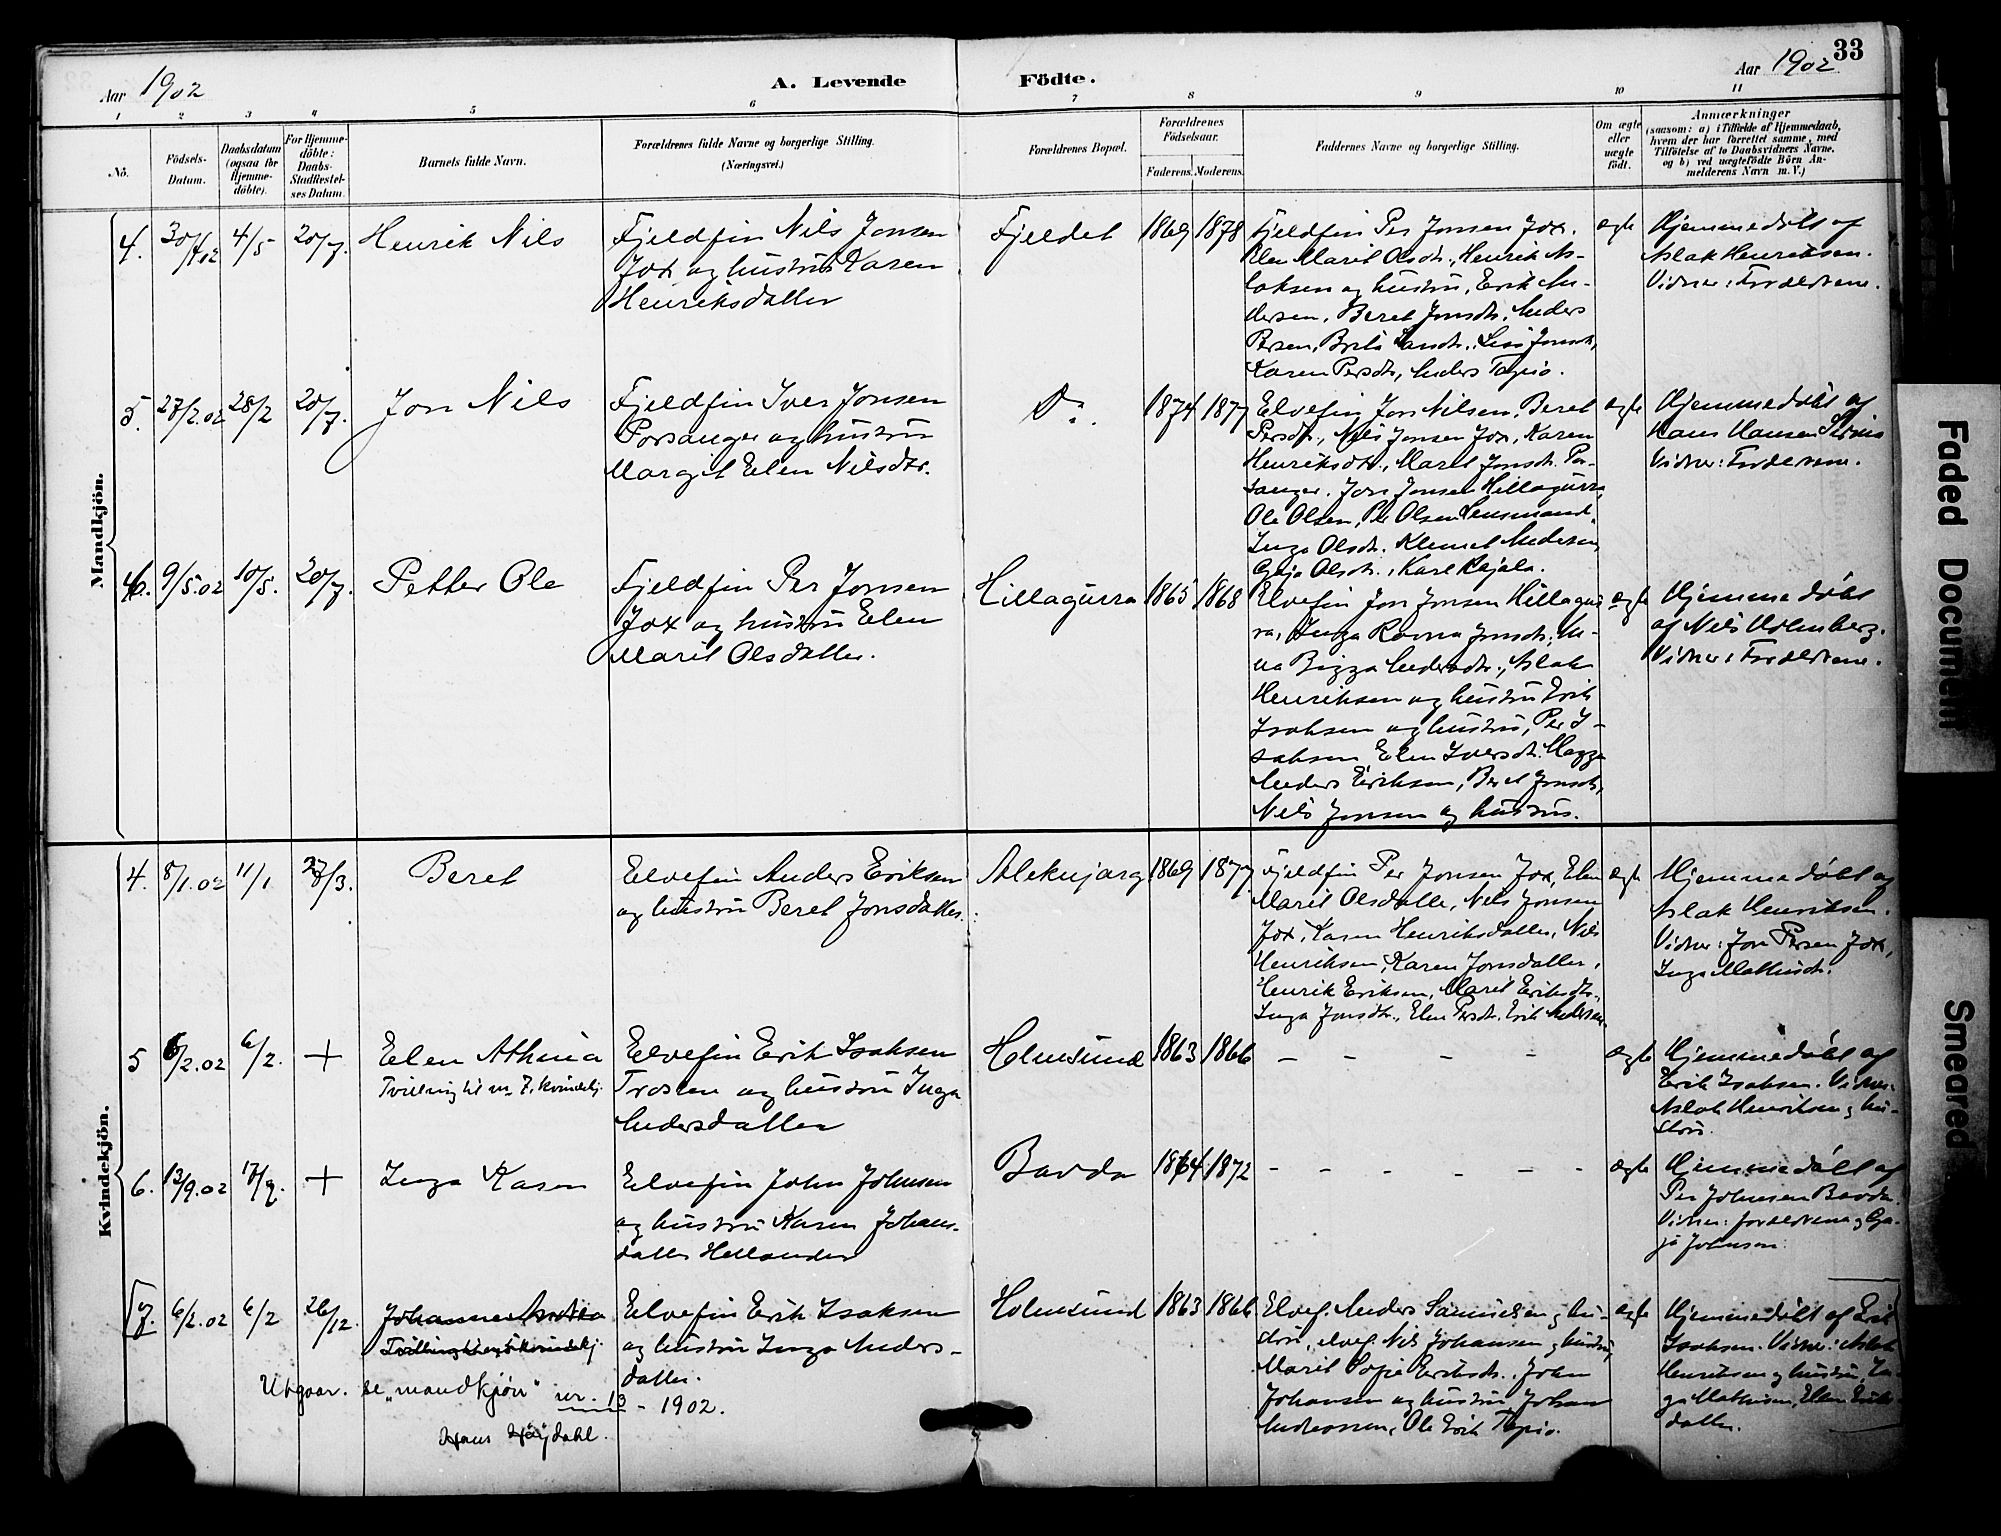 33
Aar 1902
A. Levende Födte.
Aar 1902
1 2 3 4 5 6 7 8 9 10 11
No.
Födsels-
Datum.
Daabsdatum
(ogsaa for
Hjemme-
döbte).
For Hjemme-
döbte:
Daabs-
Stadfæstel-
ses Datum.
Barnets fulde Navn.
Forældrenes fulde Navne og borgerlige Stilling.
(Næringsvei.)
Forældrenes Bopæl.
Forældrenes
Födselsaar.
Faderens. Moderens.
Faddernes Navne og borgerlige Stilling.
Om ægte
eller
uægte
födt.
Anmærkninger
(saasom: a) i Tilfælde af Hjemmedaab,
hvem der har forrettet samme, med
Tilföielse af to Daabsvidners Navne,
og b) ved uægtefödte Börn An-
melderens Navn m. V.)
Mandkjön.
4. 30/4 02 4/5 20/7. Henrik Nils
Fjeldfin Nils Jonsen
Jox og hustru Karen
Henriksdatter
Fjeldet 1869 1878
Fjeldfin Per Jonsen Jox.
Elen Marit Olsdtr., Henrik As-
laksen og hustru, Erik An-
dersen, Beret Jonsdtr., Anders
Persen, Jonsdtr,
Karen Persdtr, Anders Tapio.
ægte
Hjemmedöbt af
Aslak Henriksen.
Vidner: Forældrene.
5. 27/2.02 28/2 20/7. Jon Nils
Fjeldfin Iver Jonsen
Porsanger og hustru
Margit Elen Nilsdtr.
Do. 1874 1877
Elvefin Jon Nilsen, Beret
Persdtr., Nils Jonsen Jox, Karen
Henriksdtr., Marit Jonsdtr. Por-
sanger. Jon Jonsen Hillagurra,
Ole Olsen, Per Olsen Lensmand,
Inga Olsdtr. Klemet Andersen,
Gaja Olsdtr., Karl Rajala.
ægte
Hjemmedöbt af
Hans Hansen
Vidner: Forældrene.
6. 9/5.02 10/5. 20/7. Petter Ole
Fjeldfin Per Jonsen
Jox og hustru Elen
Marit Olsdatter.
Hillagurra 1865 1868
Elvefin Jon Jonsen Hillagur-
ra, Inga Ravna Jonsdtr., An-
na Bigga Andersdtr., Aslak
Henriksen og hustru Erik
Isaksen og hustru, Per I-
saksen, Elen Iversdtr. Magga
Anders Eriksen, Beret Jonsdtr,
Nils Jonsen og hustru.
ægte
Hjemmedöbt
af Nils Holmberg.
Vidner: Forældrene.
Kvindekjön.
4. 8/1.02 11/1 28/3. Beret
Elvefin Anders Eriksen
og hustru Beret Jonsdatter.
Aleknjarg 1869 1877
Fjeldfin Per Jonsen Jox, Elen
Marit Olsdatte, Nils Jonsen
Jox, Karen Henriksdatter, Nils
Henriksen, Karen Jonsdatter,
Henrik Eriksen, Marit Eriksdtr.,
Inga Jonsdtr., Elen Persdtr. Erik Andersen.
ægte
Hjemmedöbt af
Aslak Henriksen.
Vidner: Jon Persen Jox,
Inga Mathisdtr.
5 6/2.02 6/2. + Elen Athina
Tvilling til nr 7. kvindekj.
Elvefin Erik Isaksen
Trosten og hustru Inga
Andersdatter
Holmsund 1863 1866 – – – –
ægte
Hjemmedöbt af
Erik Isaksen. Vidner:
Aslak Henriksen og hu-
stru.
6. 13/9.02 17/9. + Inga Karen
Elvefin John Johnsen
og hustru Karen Johans-
datter Hellander
Bavda 1864 1872 – – – – – –
ægte
Hjemmedöbt af
Per Johnsen Bavda
Vidner: forældrene og Ga-
ja Johnsen.
7. 6/2.02 6/2 26/12. Johanne
Tvilling til nr 5 kvindekj.
Elvefin Erik Isaksen
og hustru Inga Anders-
datter.
Holmsund 1863 1866
Elvef. Anders Samuelsen og hu-
stru, elvef. Nils Johansen og hustru,
Marit Sofie Eriksdtr. John
Johansen og hustru, Johan
Andreassen, Ole Erik Tapio.
ægte
Hjemmedöbt af Erik
Isaksen. Vidner: Aslak
Henriksen og hustru, In-
ga Mathisen, Elen Eriks-
datter.
Utgaar. se „mandkjön" nr. 13 – 1902.
Hans Höydahl.
Faded Document
Smeared